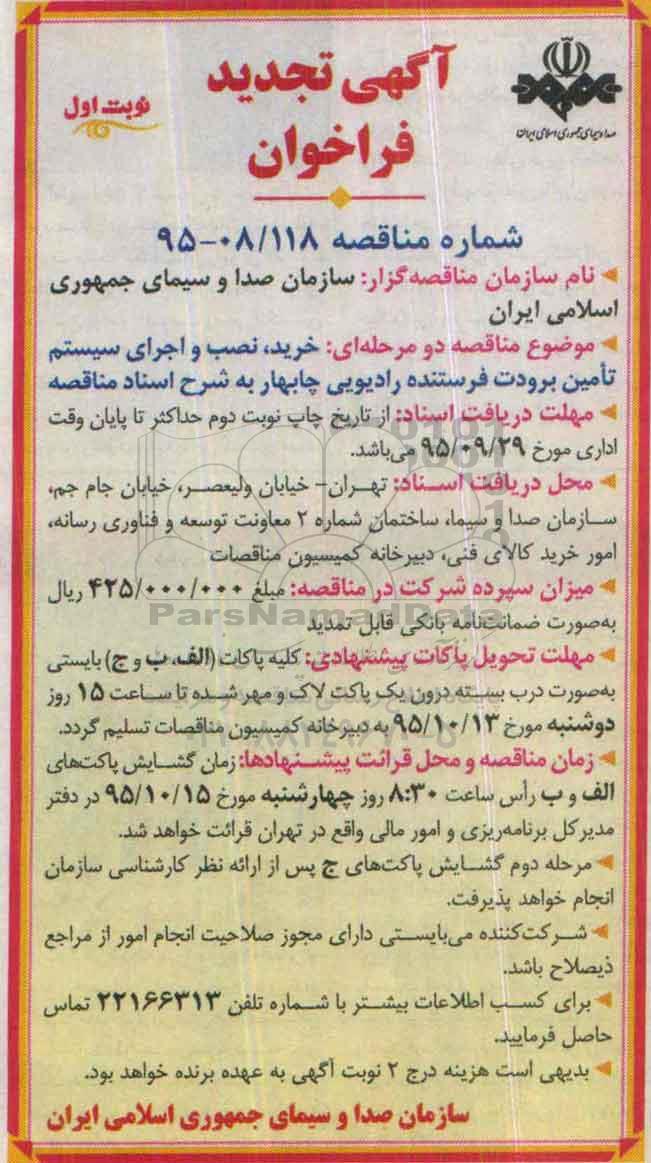 صدا و سیمای جمهوری اسلامی ایران
آگهی تجدید
فراخوان
نوبت اول
شماره مناقصه ۹۵-۰۸/۱۱۸
نام سازمان مناقصه‌گزار: سازمان صدا و سیمای جمهوری
اسلامی ایران
موضوع مناقصه دو مرحله‌ای: خرید، نصب و اجرای سیستم
تأمین برودت فرستنده رادیویی چابهار به شرح اسناد مناقصه
مهلت دریافت اسناد: از تاریخ چاپ نوبت دوم حداکثر تا پایان وقت
اداری مورخ ۹۵/۰۹/۲۹ می‌باشد.
محل دریافت اسناد: تهران- خیابان ولیعصر، خیابان جام جم،
سازمان صدا و سیما، ساختمان شماره ۲ معاونت توسعه و فناوری رسانه،
امور خرید کالای فنی، دبیرخانه کمیسیون مناقصات
میزان سپرده شرکت در مناقصه: مبلغ ۴۲۵/۰۰۰/۰۰۰ ریال
به‌صورت ضمانت‌نامه بانکی قابل تمدید
ParsNamadData
مهلت تحویل پاکات پیشنهادی: کلیه پاکات (الف، ب و ج) بایستی
به‌صورت درب بسته درون یک پاکت لاک و مهر شده تا ساعت ۱۵ روز
دوشنبه مورخ ۹۵/۱۰/۱۳ به دبیرخانه کمیسیون مناقصات تسلیم گردد.
زمان مناقصه و محل قرائت پیشنهادها: زمان گشایش پاکت‌های
الف و ب رأس ساعت ۸:۳۰ روز چهارشنبه مورخ ۹۵/۱۰/۱۵ در دفتر
مدیرکل برنامه‌ریزی و امور مالی واقع در تهران قرائت خواهد شد.
مرحله دوم گشایش پاکت‌های ج پس از ارائه نظر کارشناسی سازمان
انجام خواهد پذیرفت.
شرکت‌کننده می‌بایستی دارای مجوز صلاحیت انجام امور از مراجع
ذیصلاح باشد.
برای کسب اطلاعات بیشتر با شماره تلفن ۲۲۱۶۶۳۱۳ تماس
حاصل فرمایید.
بدیهی است هزینه درج ۲ نوبت آگهی به عهده برنده خواهد بود.
سازمان صدا و سیمای جمهوری اسلامی ایران